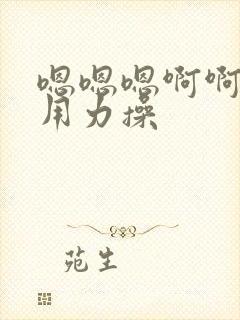 嗯嗯嗯啊啊
用力操
苑生